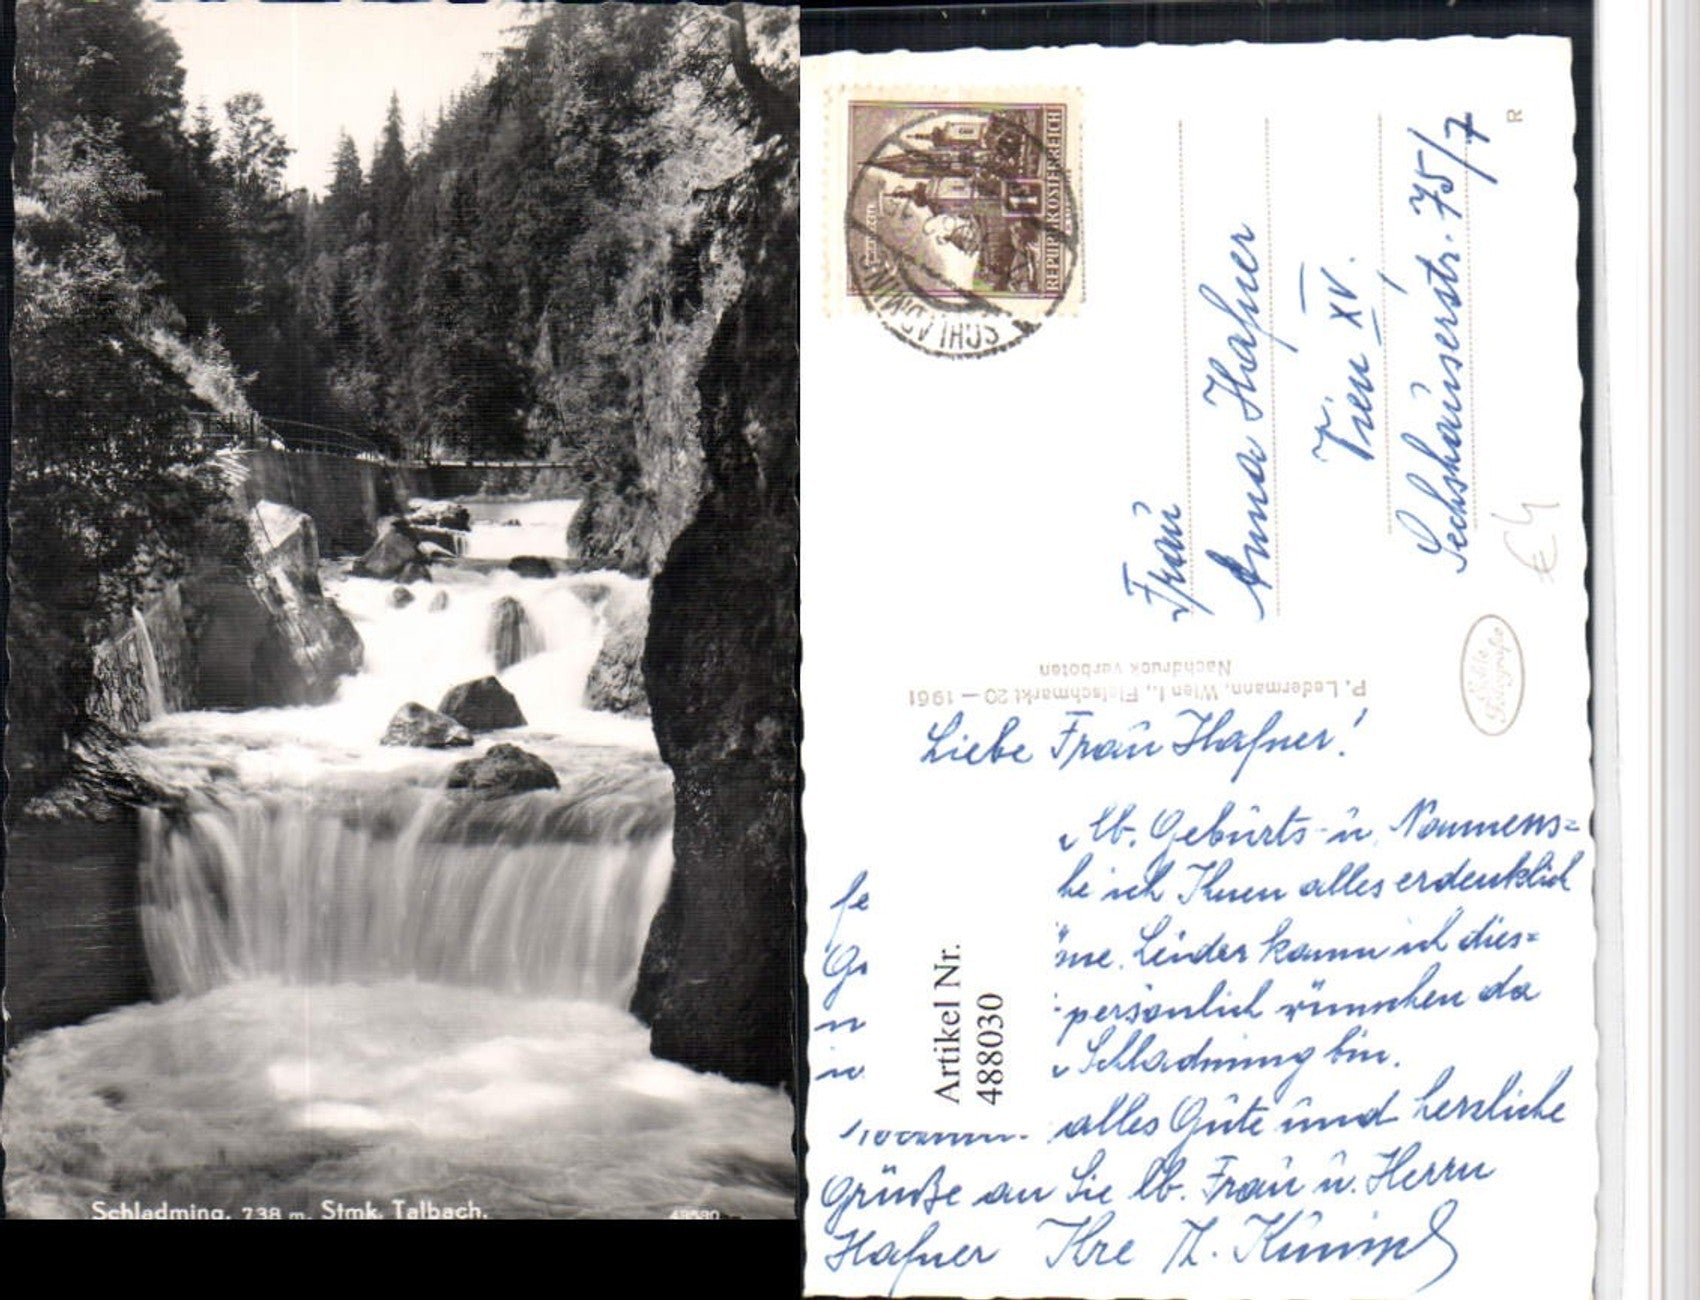 Schladming, 738 m, Stmk. Talbach.
48580
REPUBLIK ÖSTERREICH
SCHLADMING
Frau
Anna Hafner
Wien XV.
Sechshauserstr. 75/7
R
€ 4
P. Ledermann, Wien I., Fleischmarkt 20 — 1961
Nachdruck verboten
Echte
Fotografie
Liebe Frau Hafner!
lb. Geburts- u. Nammens=
fe he ich Ihnen alles erdenklich
Gu me. Leider kann ich dies=
n persönlich wünschen da
in Schladming bin.
alles Gute und herzliche
Grüße an Sie lb. Frau u. Herrn
Hafner Ihre
Artikel Nr.
488030